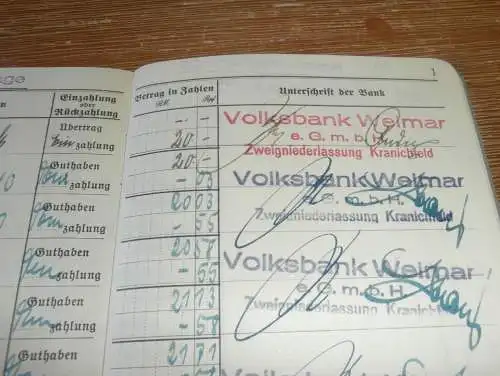 Einzahlung
oder
Rückzahlung
Betrag in Zahlen
RM
Rpf
Unterschrift der Bank
1
Übertrag
- -
Volksbank Weimar
e. G. m. b. H.
Zweigniederlassung Kranichfeld
Einzahlung
20 -
Guthaben
20 -
zahlung
- 03
Volksbank Weimar
e. G. m. b. H.
Zweigniederlassung Kranichfeld
Guthaben
20 03
zahlung
- 55
Guthaben
20 57
Volksbank Weimar
e. G. m. b. H.
Zweigniederlassung Kranichfeld
zahlung
- 55
Guthaben
21 13
zahlung
- 58
Guthaben
21 71